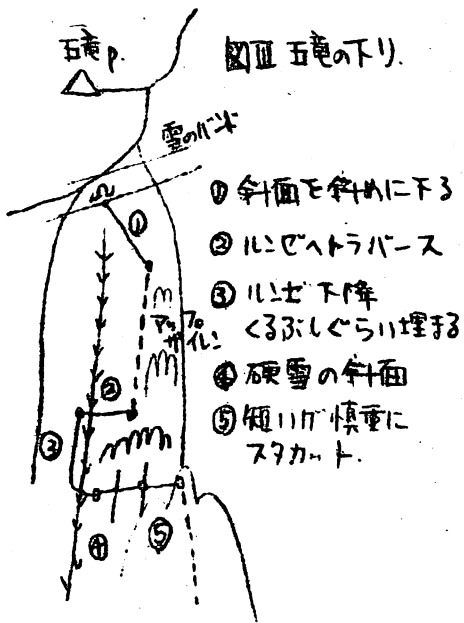 図Ⅲ 五竜の下り.
五竜 P.
雪のバンド
① 斜面を斜めに下る
② ルンゼへトラバース
③ ルンゼ下降
くるぶしぐらい埋まる
④ 硬雪の斜面
⑤ 短いが慎重に
スタカット.
①
アップ
ザイレン
②
③
④
⑤